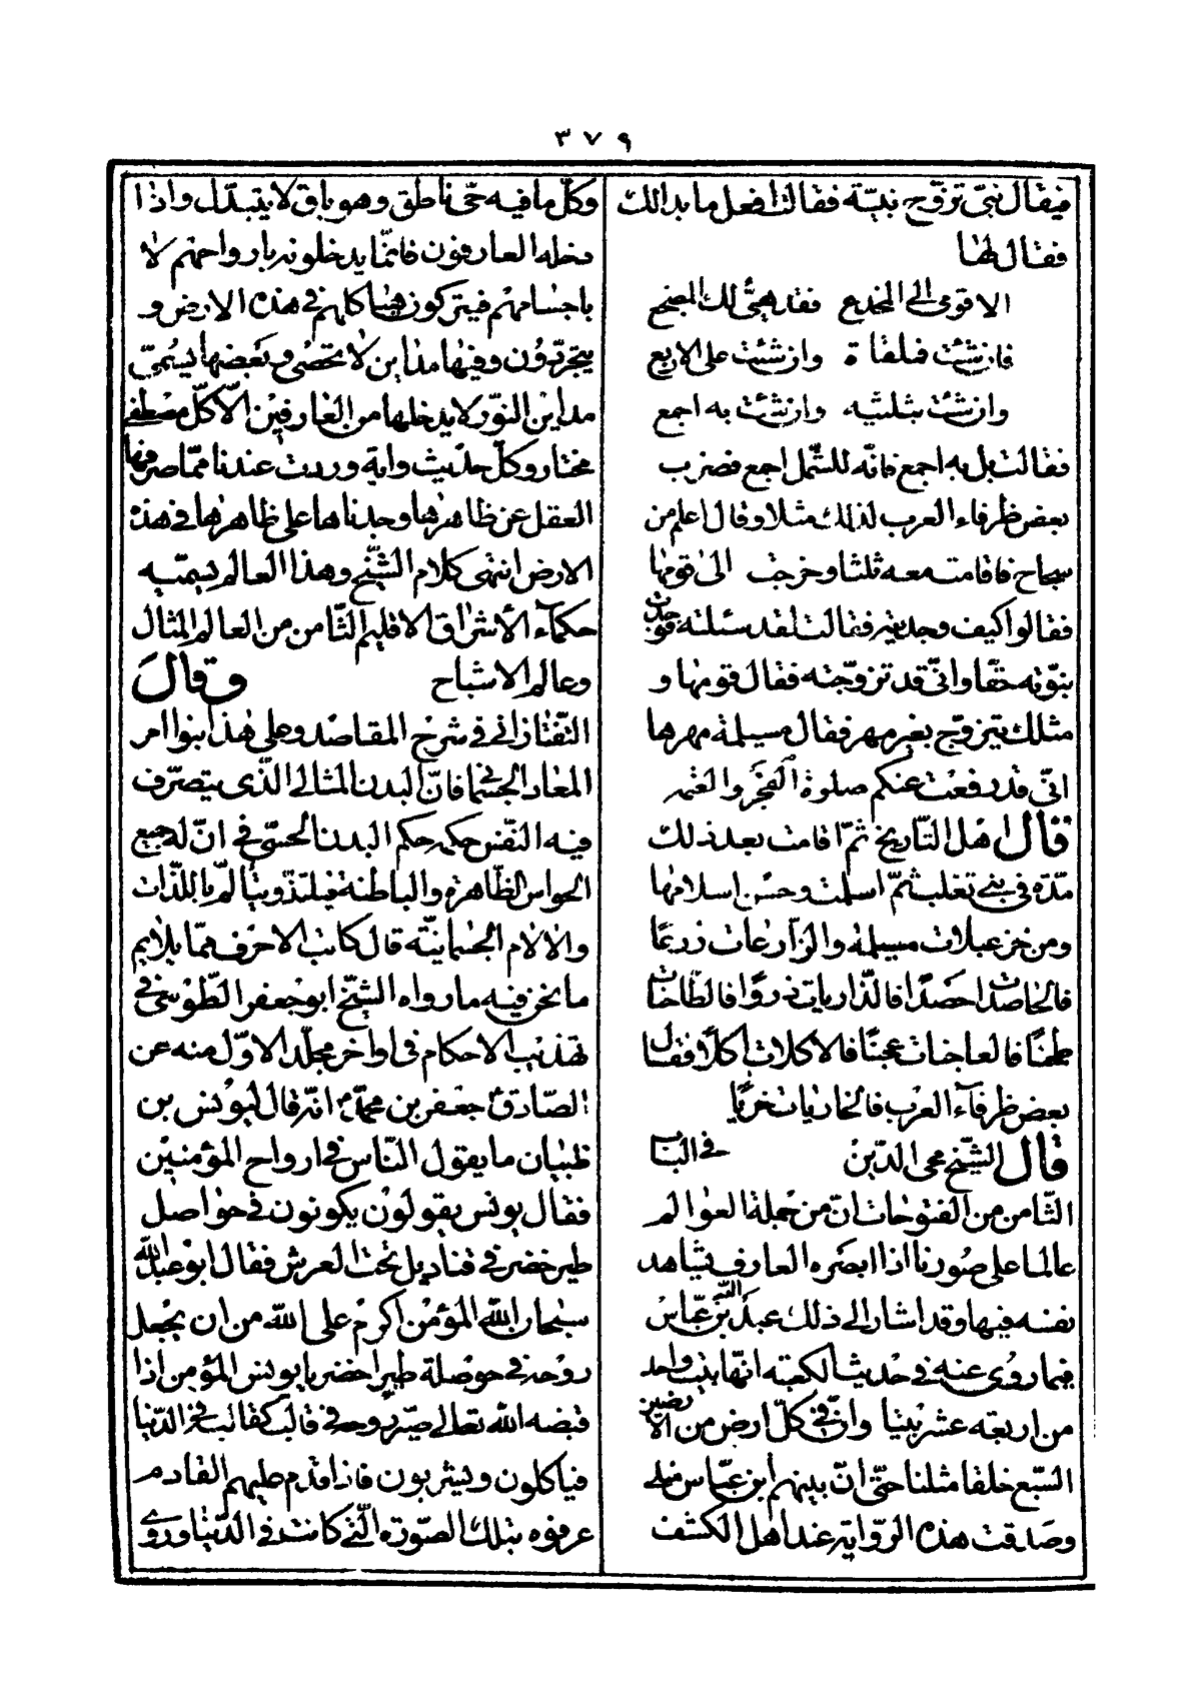 ٣٧٩
فيقال نبيّ تزوّج نبيّة فقالت افعل ما بدالك
فقال لها
الا قومى الى المخدع فقد هيّئ لك المضجع
فان شئت فملقاة وان شئت على الاربع
وان شئت بثلثيه وان شئت به اجمع
فقالت بل به اجمع فانّه للشمل اجمع فضرب
بعض ظرفاء العرب لذلك مثلا وقال اعلم من
سجاح فاقامت معه ثلثا وخرجت الى قومها
فقالوا كيف وجدتيه فقالت لقد سئلته فوجدت
نبوّته حقّا وانّى قد تزوّجته فقال قومها و
مثلك يتزوّج بغير مهر فقال مسيلمة مهرها
انّى قد رفعت عنكم صلوة الفجر والعتمه
قال اهل التّاريخ ثمّ اقامت بعد ذلك
مدّة فى بنى تغلب ثمّ اسلمت وحسن اسلامها
ومن خزعبلات مسيلمة والزّارعات زرعًا
فالحاصدات حصدًا فالذّاريات ذروًا فالطّاحنات
طحنًا فالعاجنات عجنًا فالاكلات اكلًا فقال
بعض ظرفآء العرب فالخاريات خريًا
قال الشّيخ محى الدّين فى الباب
الثّامن من الفتوحات انّ من جملة العوالم
عالما على صورنا اذا ابصره العارف يشاهد
نفسه فيها وقد اشار الى ذلك عبد الله بن عبّاس
فيما روى عنه فى حديث الكعبة انّها بيت واحد
من اربعة عشر بيتا وانّ فى كلّ ارض من الارضين
السّبع خلقا مثلنا حتّى انّ بينهم ابن عبّاس مثلى
وصدقت هذه الرّواية عند اهل الكشف
وكلّ ما فيه حىّ ناطق وهو باق لا يتبدّل واذا
دخله العارفون فانّما يدخلونه بارواحهم لا
باجسامهم فيتركون هياكلهم فى هذه الارض و
يتجرّدون وفيها مداين لا تحصى وبعضها يسمّى
مداين النّور لا يدخلها من العارفين الّا كلّ مصطفى
مختار وكلّ حديث واية وردت عندنا ممّا صرفها
العقل عن ظاهرها وجدناها على ظاهرها فى هذه
الارض انتهى كلام الشّيخ وهذا العالم يسمّيه
حكمآء الأشراق الاقليم الثّامن من العالم المثال
وعالم الاشباح وقال
التّفتازانى فى شرح المقاصد وعلى هذا بنوا امر
المعاد الجسمانى فانّ البدن المثالى الّذى يتصرّف
فيه النّفس حكمه حكم البدن الحسّى فى انّ له جميع
الحواس الظّاهرة والباطنة فيلتذّ ويتألّم باللذّات
والالام الجسمانيّة قال كاتب الاحرف ممّا يلايم
ما نحن فيه ما رواه الشيخ ابو جعفر الطّوسى فى
تهذيب الاحكام فى اواخر مجلّد الاوّل منه عن
الصّادق جعفر بن محمّد انّه قال ليونس بن
ظبيان ما يقول النّاس فى ارواح المؤمنين
فقال يونس يقولون يكونون فى حواصل
طير خضر فى قناديل تحت العرش فقال ابو عبد الله
سبحان الله المؤمن اكرم على الله من ان يجعل
روحه فى حوصلة طير اخضر يا يونس المؤمن اذا
قبضه الله تعالى صيّر روحه فى قالب كقالبه فى الدّنيا
فياكلون ويشربون فاذا قدم عليهم القادم
عرفوه بتلك الصّورة الّتى كانت فى الدّنيا وروى